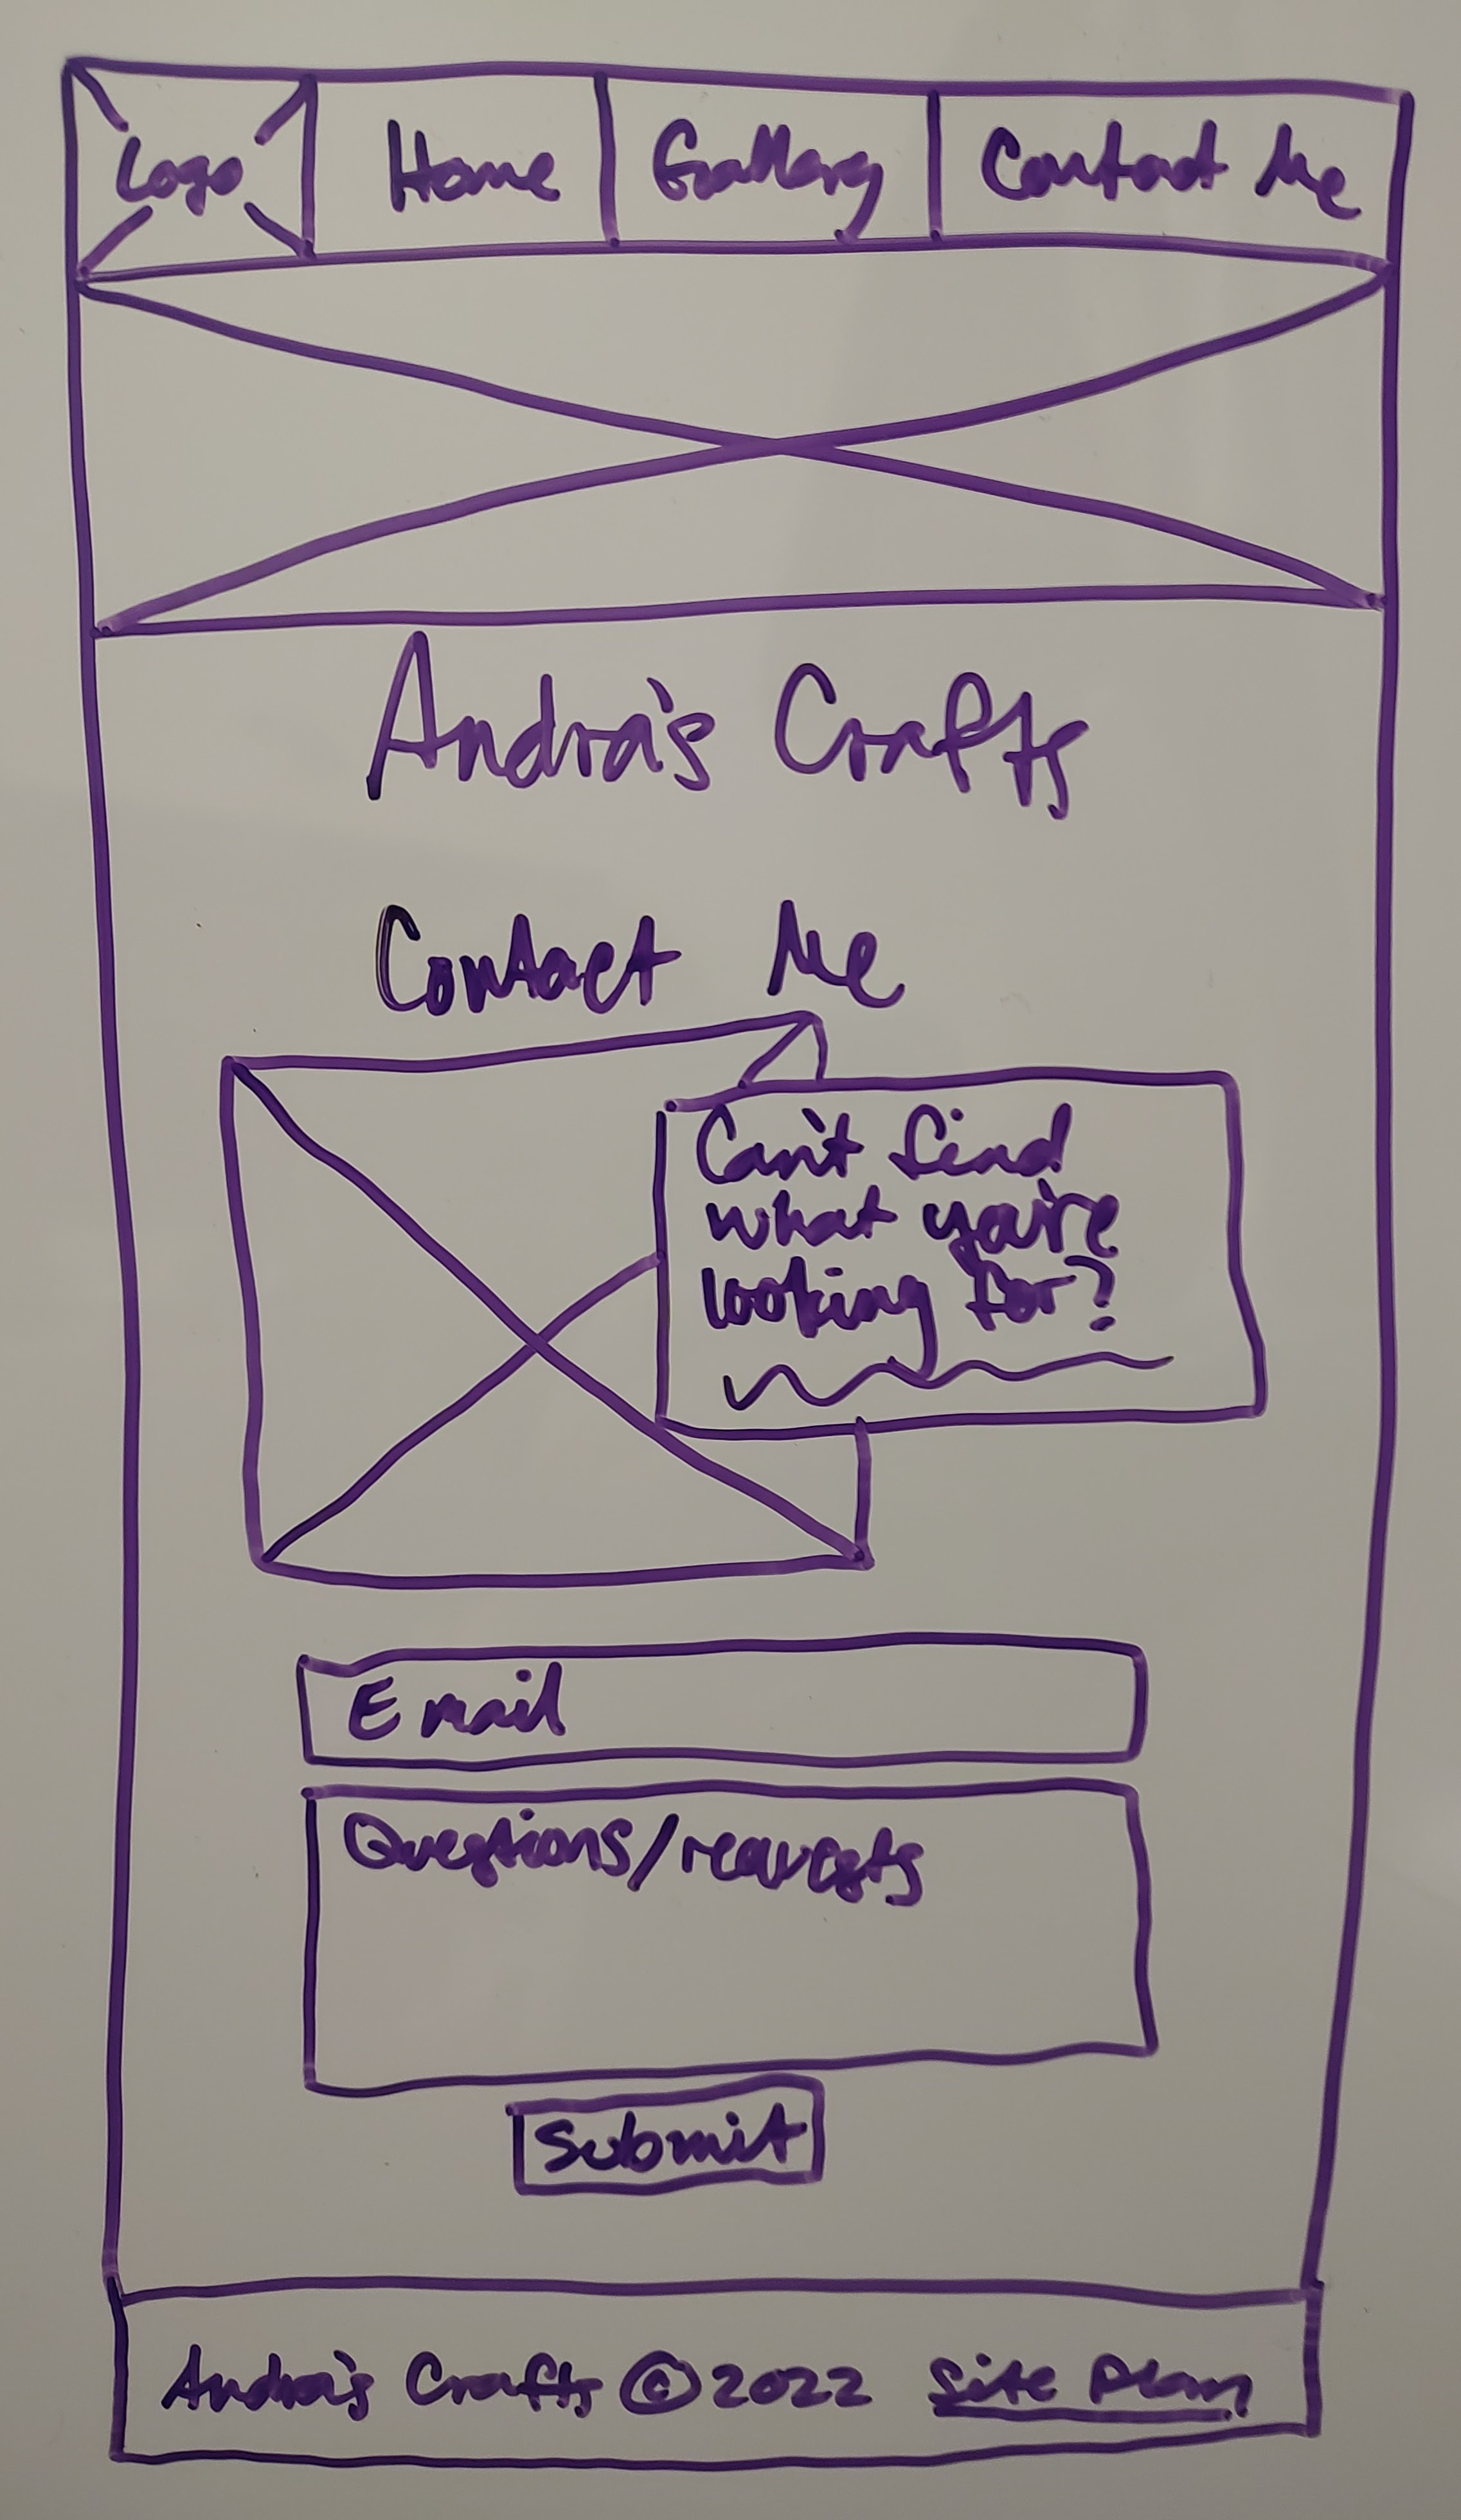 Logo Home Gallery Contact Me
Andra's Crafts
Contact Me
Can't find
what you're
looking for?
Email
Questions/requests
Submit
Andra's Crafts © 2022 Site Plan